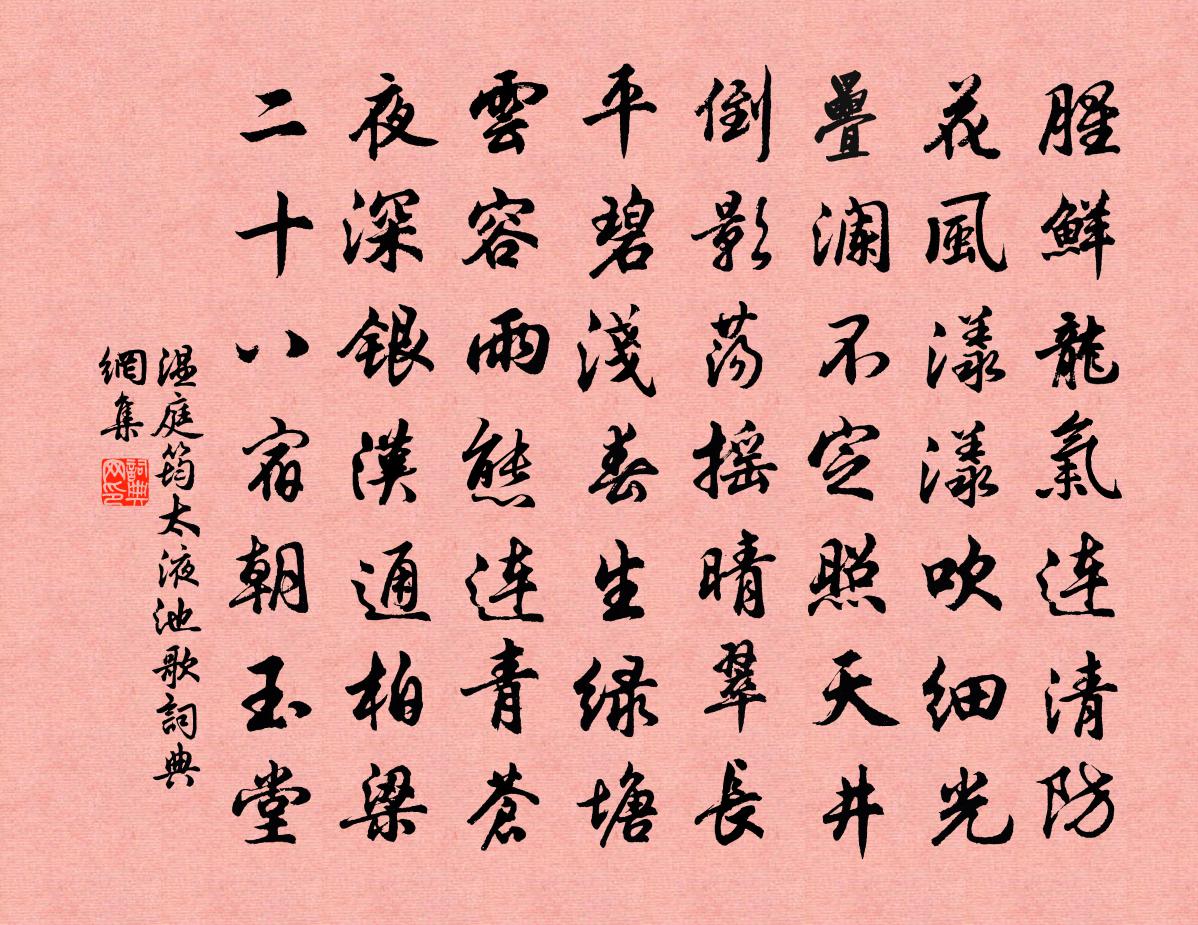 腥鮮龍氣連清防
花風漾漾吹細光
疊瀾不定照天井
倒影蕩搖晴翠長
平碧淺春生綠塘
雲容雨態連青蒼
夜深銀漢通柏梁
二十八宿朝玉堂
溫庭筠太液池歌詞典
網集
詞典网印